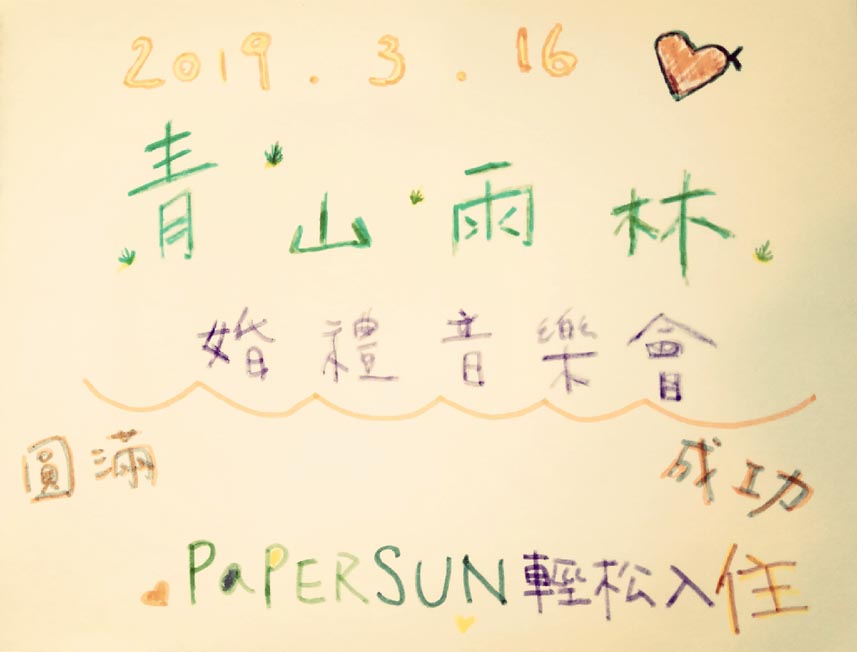 2019.3.16
青山雨林
婚禮音樂會
圓滿 成功
PaPERSUN輕松入住